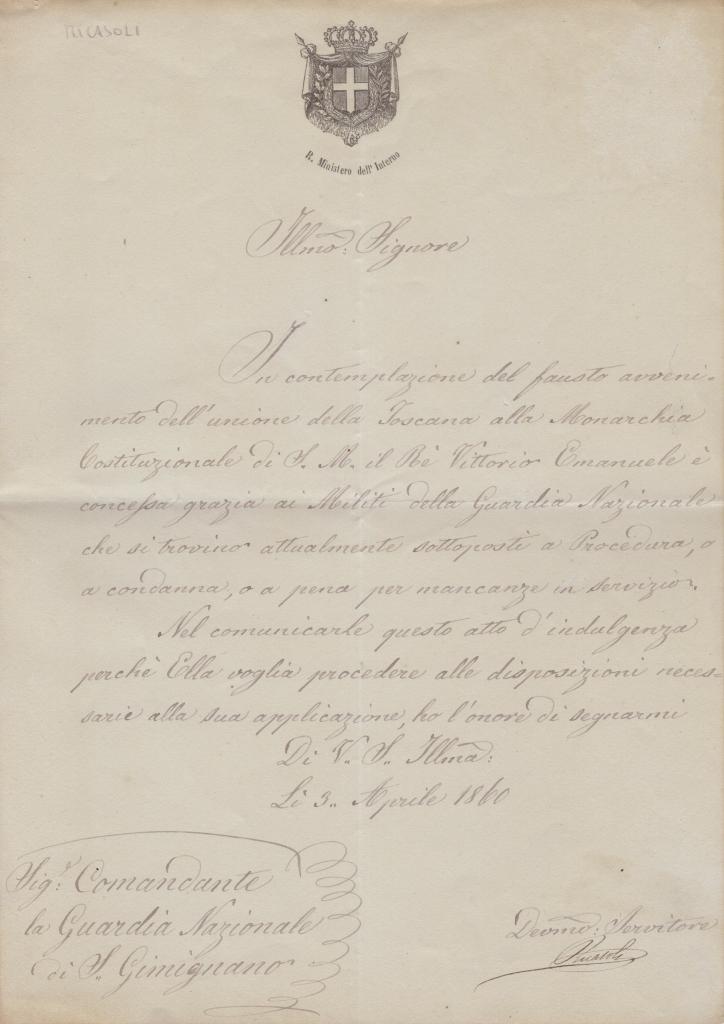 RICASOLI
R. Ministero dell' Interno
Illmo: Signore
In contemplazione del fausto avveni-
mento dell'unione della Toscana alla Monarchia
Costituzionale di S. M. il Rè Vittorio Emanuele è
concessa grazia ai Militi della Guardia Nazionale
che si trovino attualmente sottoposti a Procedura, o
a condanna, o a pena per mancanze in servizio.
Nel comunicarle questo atto d'indulgenza
perchè Ella voglia procedere alle disposizioni neces-
sarie alla sua applicazione, ho l'onore di segnarmi
Di V. S. Illma:
Li 3. Aprile 1860
Sigr: Comandante
la Guardia Nazionale
di S. Gimignano
Devmo: Servitore
Ricasoli